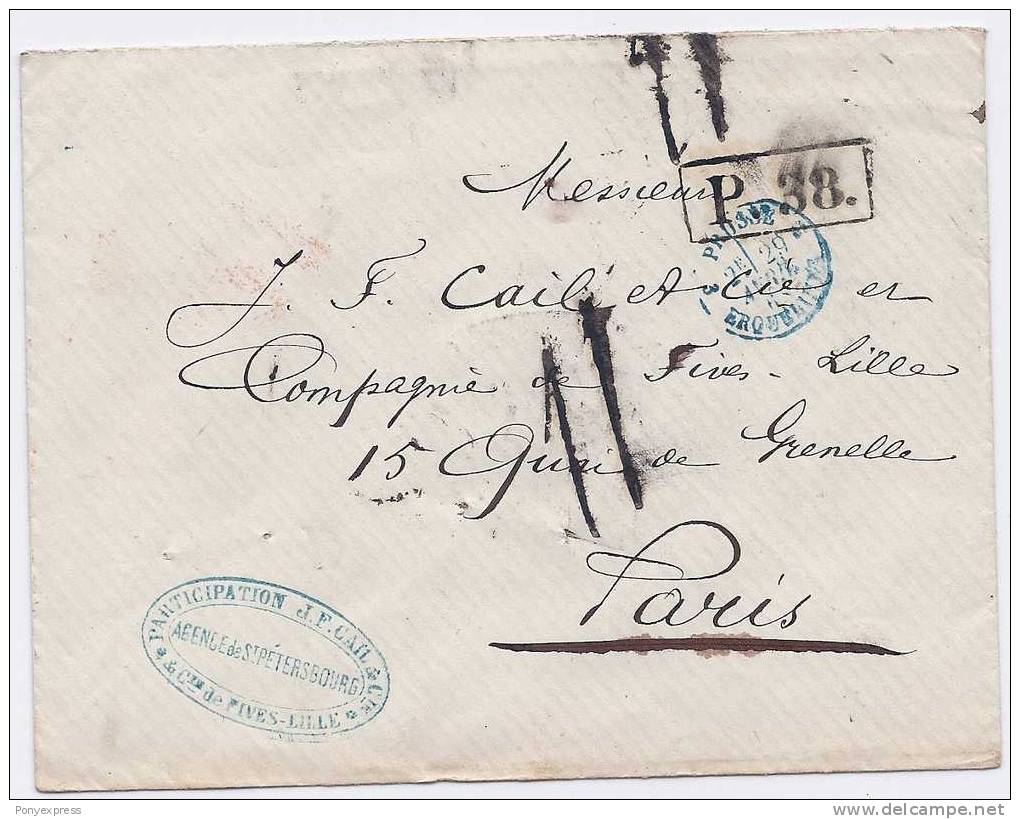 P. 38.
Messieurs
PRUSSE
3 29
ERQUELINES
J. F. Cail et Cie et
Compagnie de Fives-Lille
15 Quai de Grenelle
Paris
PARTICIPATION J. F. CAIL & CIE
AGENCE de ST PÉTERSBOURG
& CIE de FIVES-LILLE
Ponyexpress
www.delcampe.net